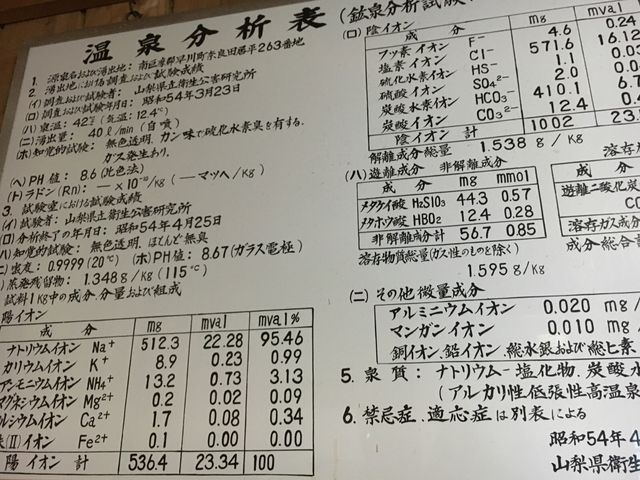 温泉分析表 (鉱泉分析試験
1. 源泉名および湧出地: 南巨摩郡早川町奈良田居平263番地
2. 湧出地における調査および試験成績
(イ) 調査および試験者: 山梨県立衛生公害研究所
(ロ) 調査および試験年月日: 昭和54年3月23日
(ハ) 泉温: 42℃ (気温: 12.4℃)
(ニ) 湧出量: 40ℓ/min (自噴)
(ホ) 知覚的試験: 無色透明、カン味で硫化水素臭を有する.
ガス発生あり.
(ヘ) PH値: 8.6 (比色法)
(ト) ラドン(Rn): — ×10⁻¹⁰/Kg ( — マッヘ/Kg)
3. 試験室における試験成績
(イ) 試験者: 山梨県立衛生公害研究所
(ロ) 分析終了の年月日: 昭和54年4月25日
(ハ) 知覚的試験: 無色透明、ほとんど無臭
(ニ) 密度: 0.9999 (20℃) (ホ) PH値: 8.67 (ガラス電極)
蒸発残留物: 1.348g/Kg (115℃)
試料1Kg中の成分、分量および組成
陽イオン
成分 mg mval mval%
ナトリウムイオン Na⁺ 512.3 22.28 95.46
カリウムイオン K⁺ 8.9 0.23 0.99
アンモニウムイオン NH₄⁺ 13.2 0.73 3.13
マグネシウムイオン Mg²⁺ 0.2 0.02 0.09
カルシウムイオン Ca²⁺ 1.7 0.08 0.34
鉄(Ⅱ)イオン Fe²⁺ 0.1 0.00 0.00
陽イオン計 536.4 23.34 100
(ロ) 陰イオン
成分 mg mval
フッ素イオン F⁻ 4.6 0.24
塩素イオン Cl⁻ 571.6 16.12
硫化水素イオン HS⁻ 1.1 0.0
硫酸イオン SO₄²⁻ 2.0 0.0
炭酸水素イオン HCO₃⁻ 410.1 6.7
炭酸イオン CO₃²⁻ 12.4 0.4
陰イオン計 1002 23.
解離成分総量 1.538 g/Kg
(ハ) 遊離成分 非解離成分
成分 mg mmol
メタケイ酸 H₂SiO₃ 44.3 0.57
メタホウ酸 HBO₂ 12.4 0.28
非解離成分計 56.7 0.85
溶存物質総量(ガス性のものを除く)
1.595 g/Kg
溶存ガ
成
遊離二酸化炭
CO
溶存ガス成分
成分総
(ニ) その他微量成分
アルミニウムイオン 0.020 mg/
マンガンイオン 0.010 mg/
銅イオン、鉛イオン、総水銀および総ヒ素
5. 泉質: ナトリウム−塩化物、炭酸水
(アルカリ性低張性高温泉
6. 禁忌症、適応症は別表による
昭和54年4
山梨県衛生